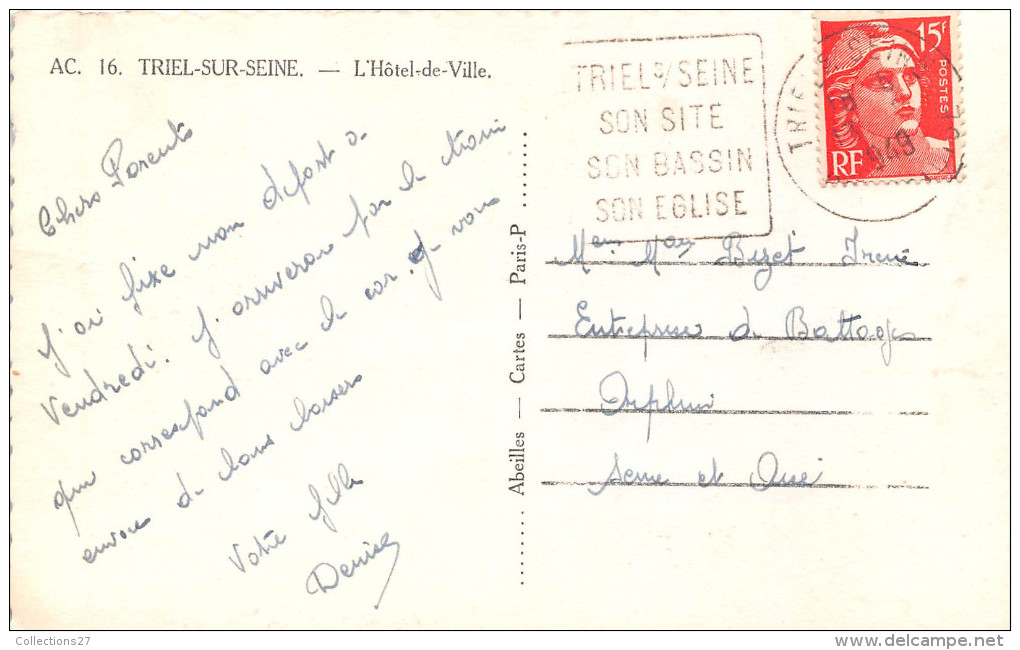 AC. 16. TRIEL-SUR-SEINE. — L'Hôtel-de-Ville.
Chers Parents
J'ai fixe mon départ a
Vendredi. J'arriverai par le train
qui correspond avec le car. Je vous
envoie de bons baisers
Votre fille
Denise
Abeilles — Cartes — Paris-P
TRIEL S/SEINE
SON SITE
SON BASSIN
SON EGLISE
15F
POSTES
RF
1949
Bizet Irené
Entreprise de Battage
Orphin
Seine et Oise
Collections27
delcampe.net